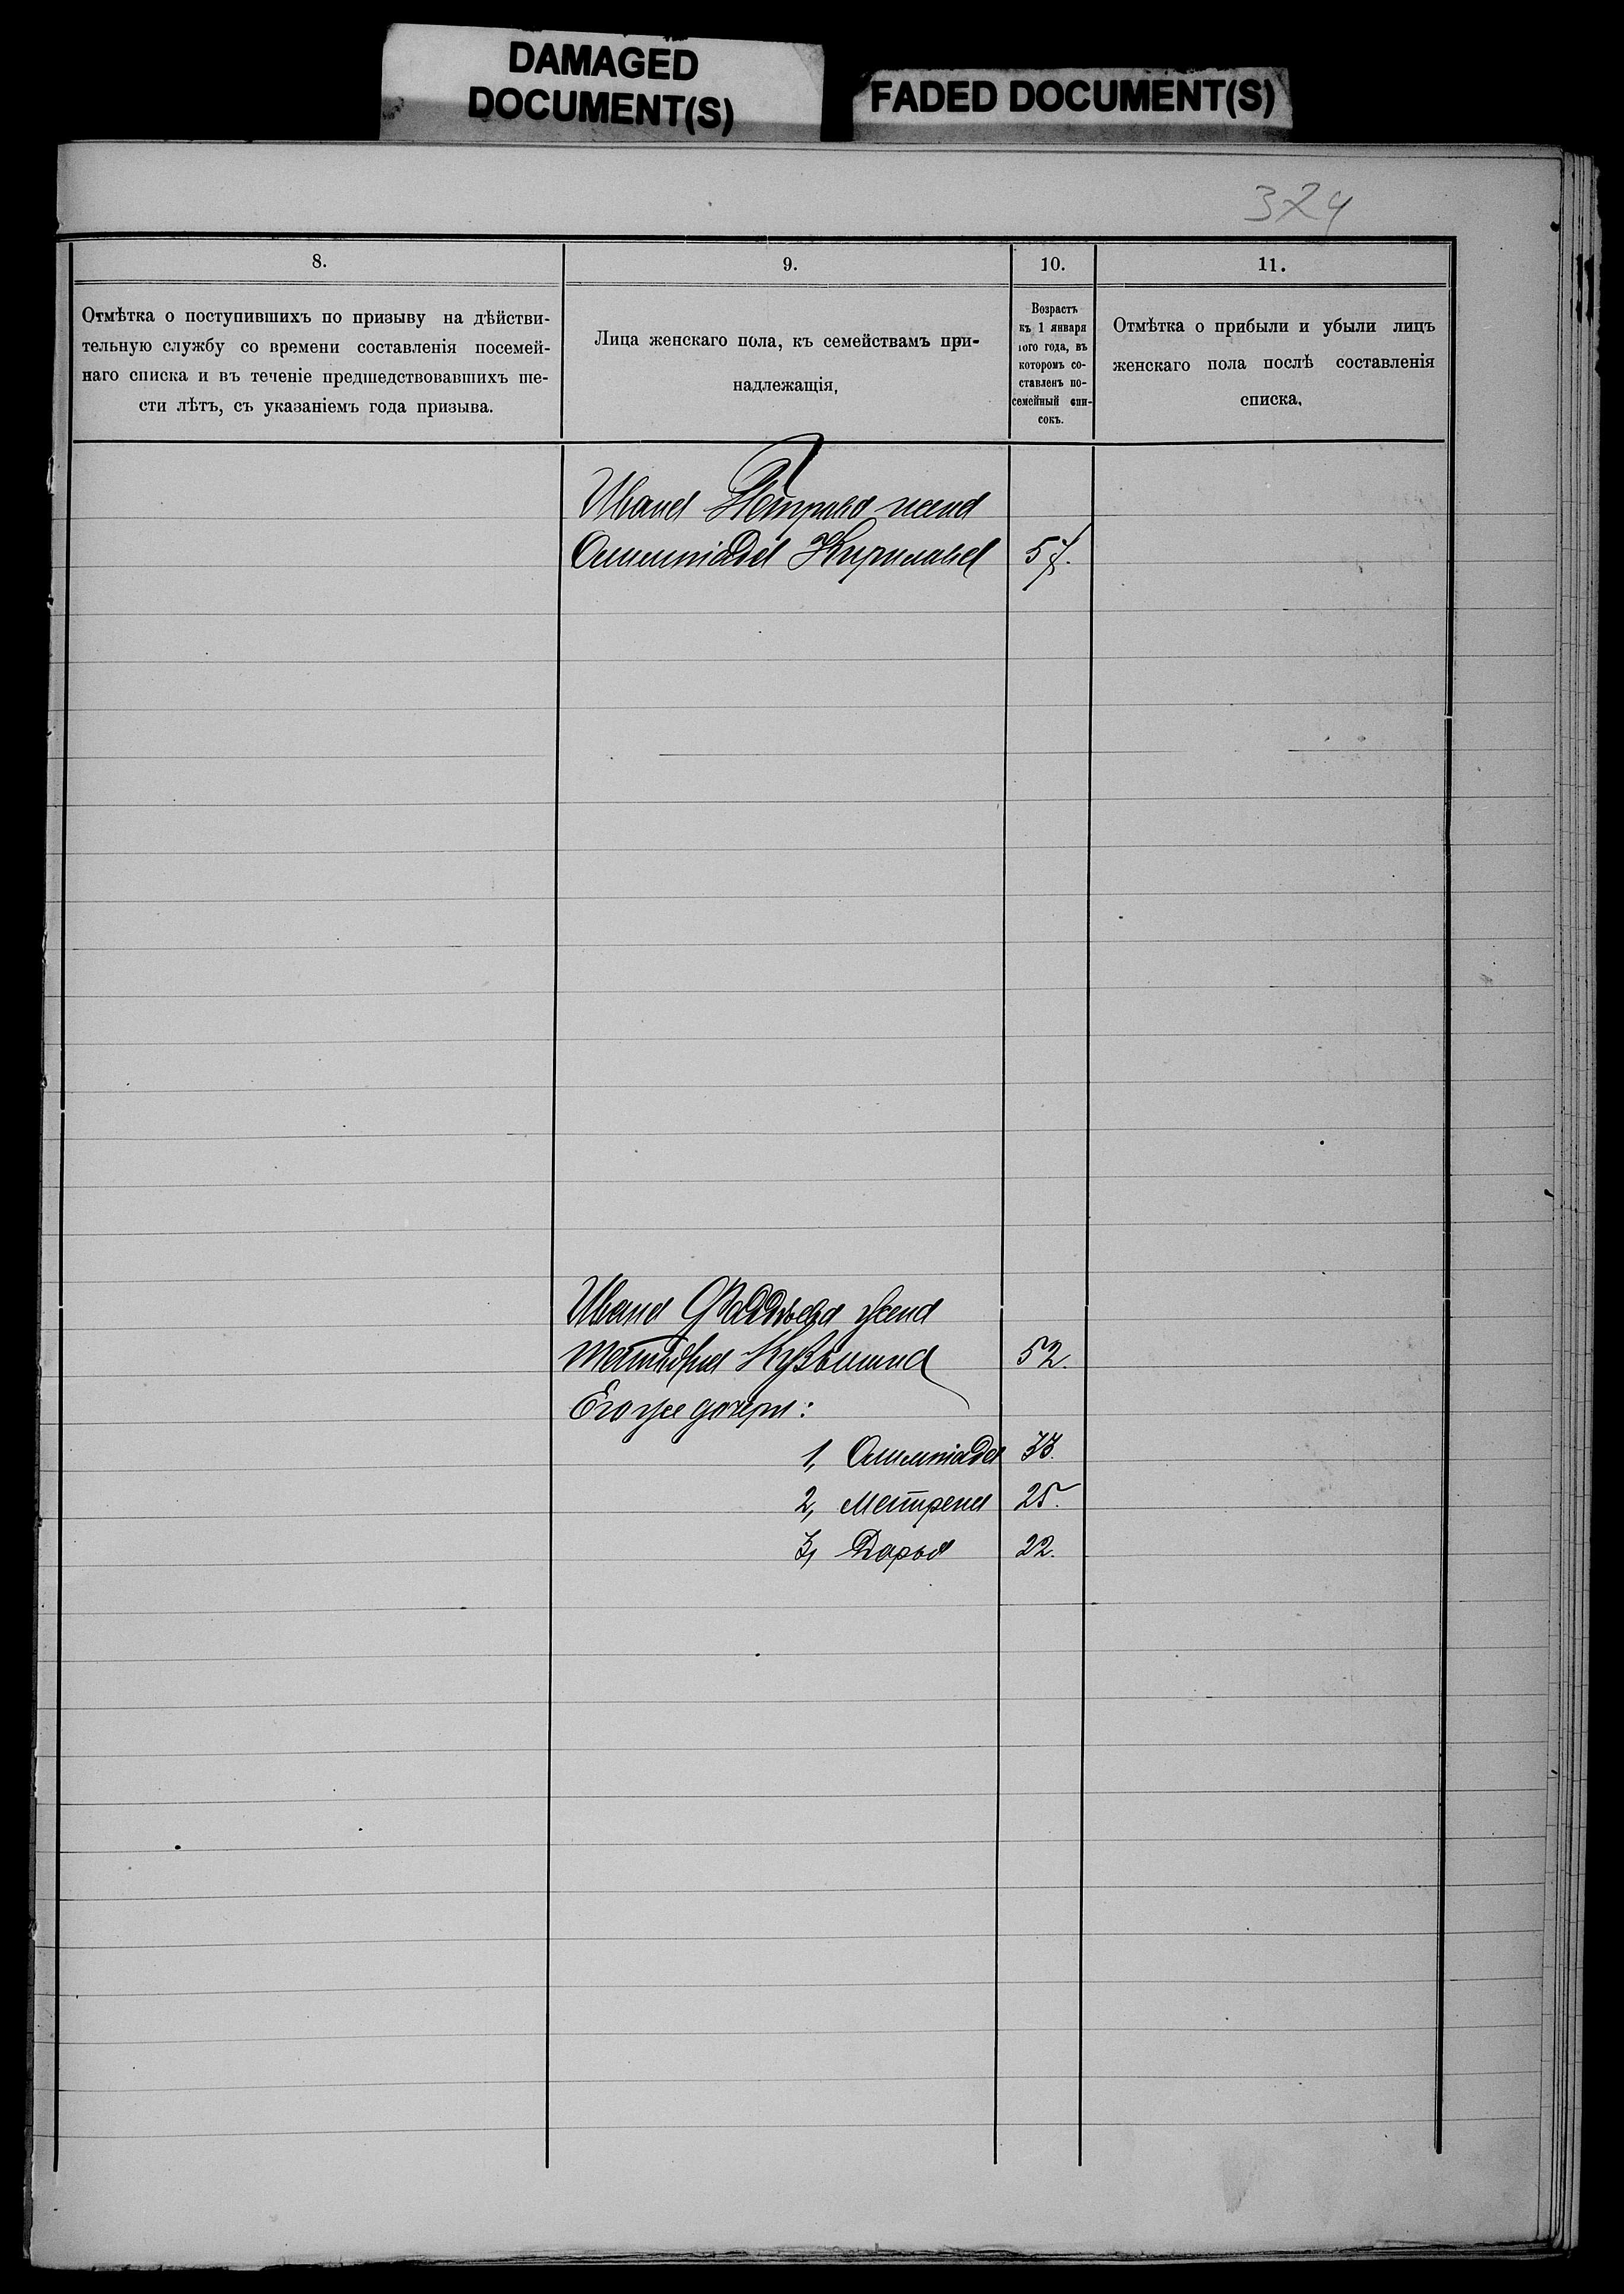 DAMAGED
DOCUMENT(S)
FADED DOCUMENT(S)
324
8.
Отмѣтка о поступившихъ по призыву на дѣйстви-
тельную службу со времени составленія посемей-
наго списка и въ теченіе предшедствовавшихъ ше-
сти лѣтъ, съ указаніемъ года призыва.
9.
Лица женскаго пола, къ семействамъ при-
надлежащія,
10.
Возрастъ
къ 1 января
того года, въ
которомъ со-
ставленъ по-
семейный спи-
сокъ.
11.
Отмѣтка о прибыли и убыли лицъ
женскаго пола послѣ составленія
списка,
Ивана Петрова жена
Олимпіада Кирилова 57.
Ивана Фаддѣева жена
Кузьмина 52.
Его же дочери:
1, Олимпіада 33.
2, Матрена 25.
3, Дарья 22.